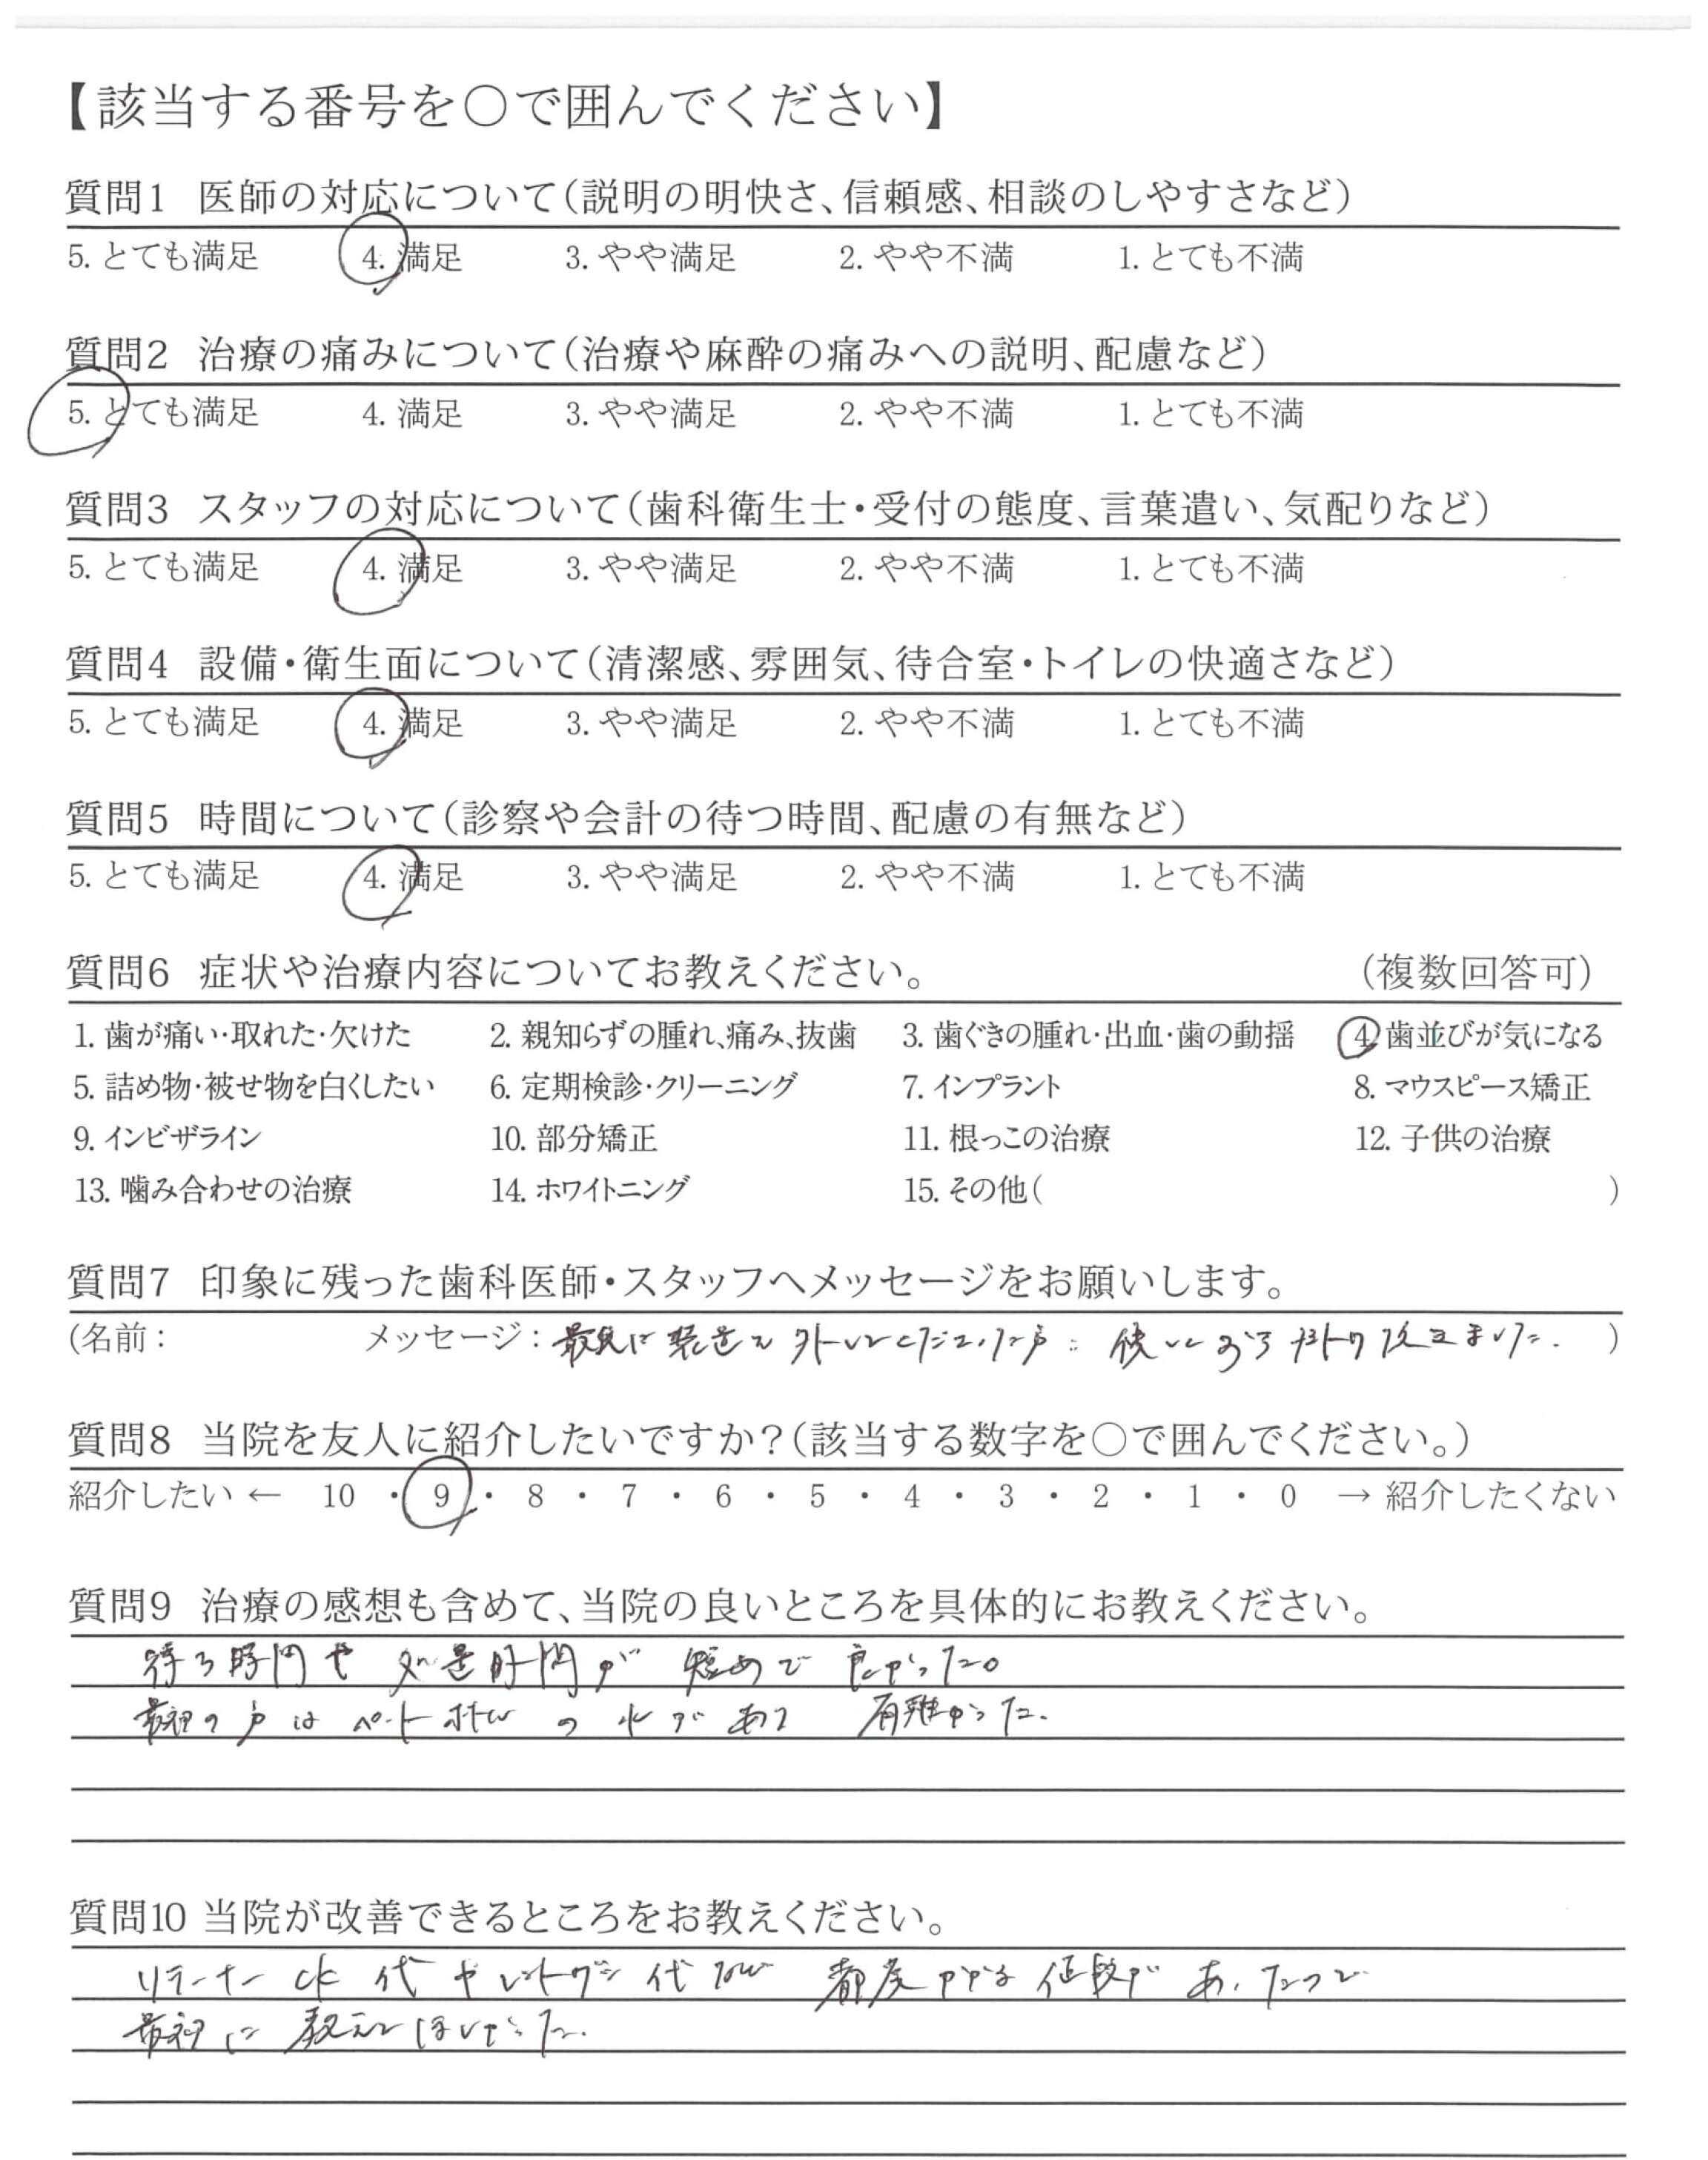 【該当する番号を○で囲んでください】
質問1 医師の対応について(説明の明快さ、信頼感、相談のしやすさなど)
5. とても満足 4. 満足 3. やや満足 2. やや不満 1. とても不満
質問2 治療の痛みについて(治療や麻酔の痛みへの説明、配慮など)
5. とても満足 4. 満足 3. やや満足 2. やや不満 1. とても不満
質問3 スタッフの対応について(歯科衛生士・受付の態度、言葉遣い、気配りなど)
5. とても満足 4. 満足 3. やや満足 2. やや不満 1. とても不満
質問4 設備・衛生面について(清潔感、雰囲気、待合室・トイレの快適さなど)
5. とても満足 4. 満足 3. やや満足 2. やや不満 1. とても不満
質問5 時間について(診察や会計の待つ時間、配慮の有無など)
5. とても満足 4. 満足 3. やや満足 2. やや不満 1. とても不満
質問6 症状や治療内容についてお教えください。 (複数回答可)
1. 歯が痛い・取れた・欠けた 2. 親知らずの腫れ、痛み、抜歯 3. 歯ぐきの腫れ・出血・歯の動揺 4 歯並びが気になる
5. 詰め物・被せ物を白くしたい 6. 定期検診・クリーニング 7. インプラント 8. マウスピース矯正
9. インビザライン 10. 部分矯正 11. 根っこの治療 12. 子供の治療
13. 噛み合わせの治療 14. ホワイトニング 15. その他( )
質問7 印象に残った歯科医師・スタッフへメッセージをお願いします。
(名前: メッセージ: 最後に装置を外して )
質問8 当院を友人に紹介したいですか?(該当する数字を○で囲んでください。)
紹介したい ← 10 ・ 9 ・ 8 ・ 7 ・ 6 ・ 5 ・ 4 ・ 3 ・ 2 ・ 1 ・ 0 → 紹介したくない
質問9 治療の感想も含めて、当院の良いところを具体的にお教えください。
待ち時間や処置時間が短めで良かった。
最初の はペットボトルの水があり有難かった.
質問10 当院が改善できるところをお教えください。
リテーナー代やレントゲン代 都度かかる値段があったので
最初に教えてほしかった.